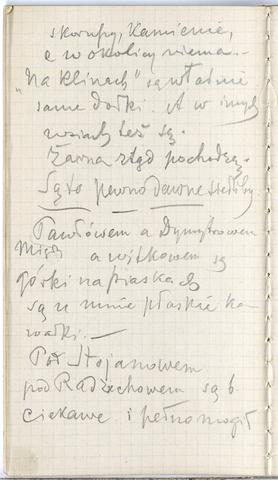 skorupy, Kamienie,
a w okolicy niema.-
"Na klinach" są właśnie
same dołki. A w innych
też są.
Żarna stąd pochodzą.
Są to pewno dawne siedziby.
Między Pawłowem a Dymytrowem
a Witkowem są
górki na piaskach
są u mnie płaskie ka
wałki.-
Pod Stojanowem
pod Radziechowem są b.
ciekawe i pełno mogił